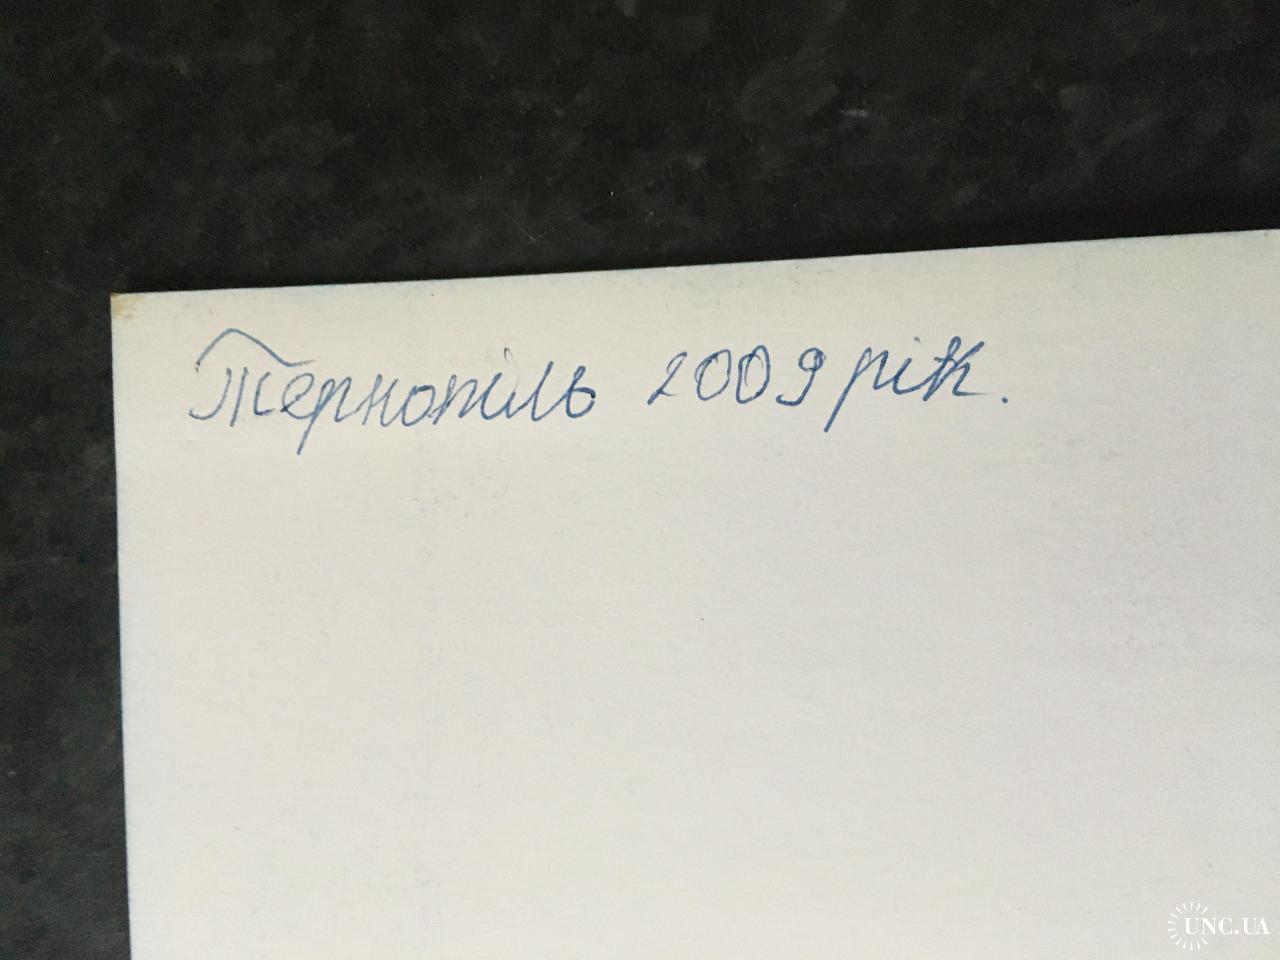 Тернопіль 2009 рік.
UNC.UA